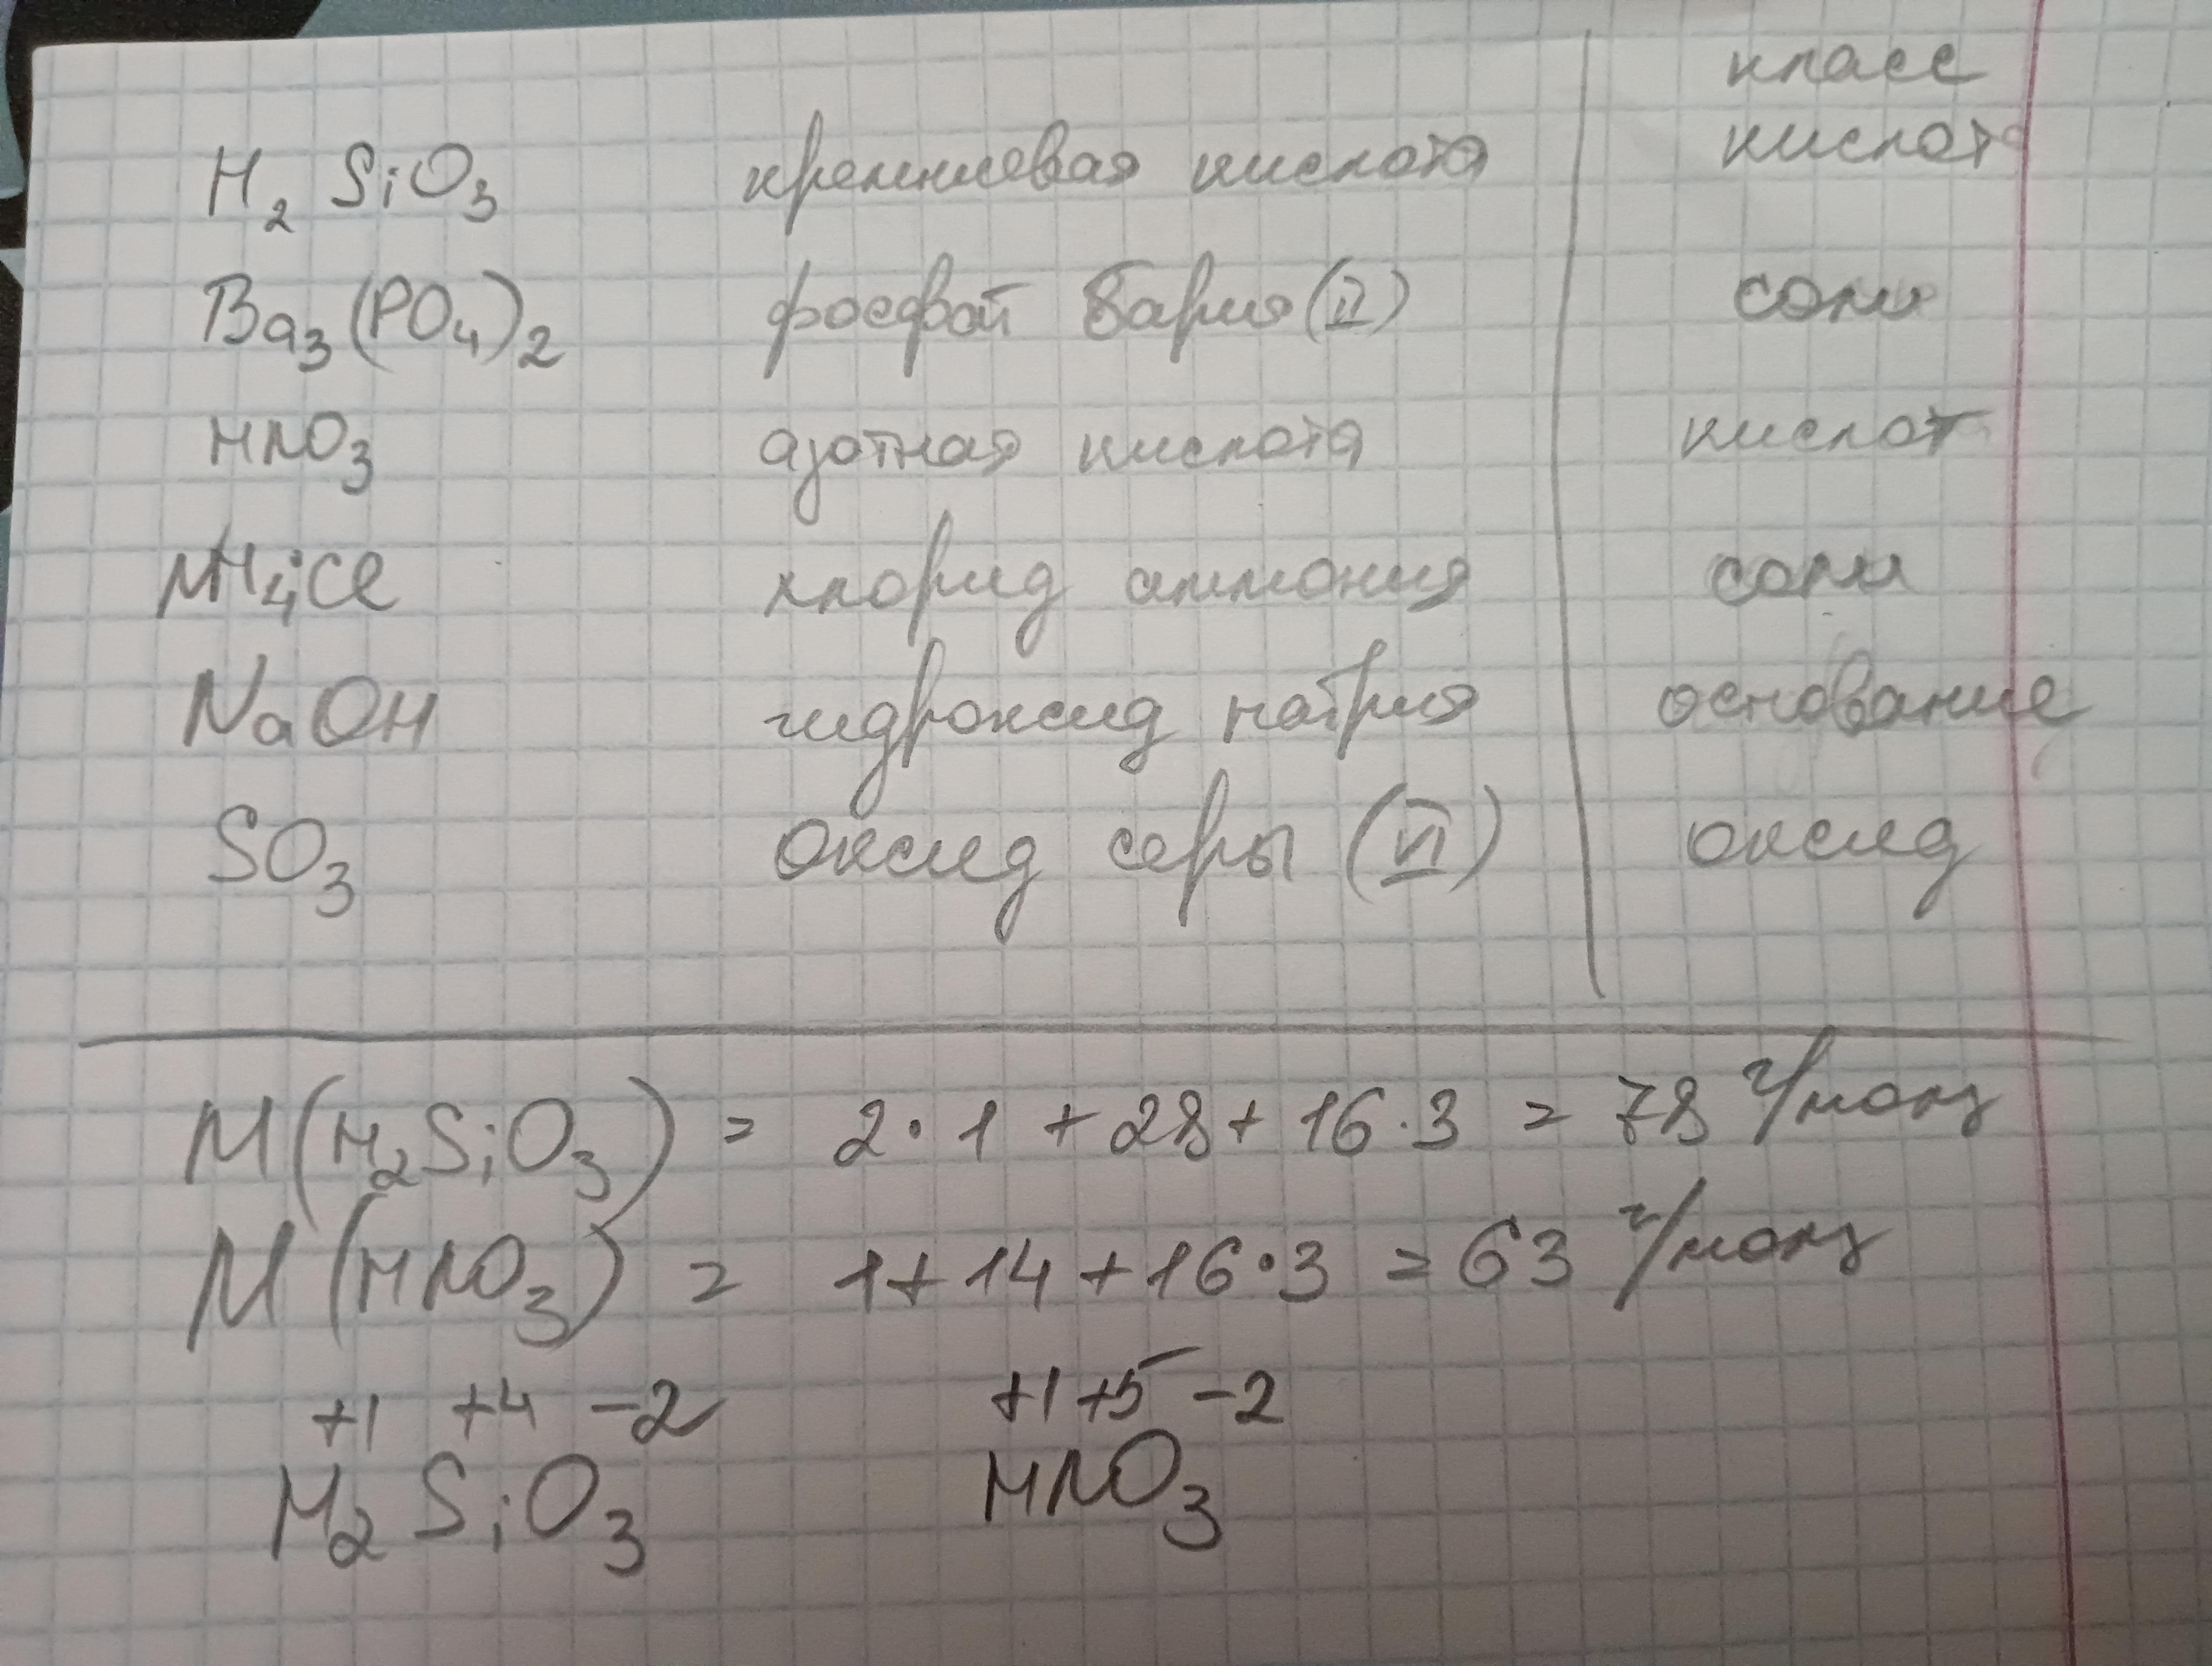 класс
H₂SiO₃ кремниевая кислота кислота
Ba₃(PO₄)₂ фосфат бария (II) соли
HNO₃ азотная кислота кислот
NH₄Cl хлорид аммония соли
NaOH гидроксид натрия основание
SO₃ оксид серы (VI) оксид
M(H₂SiO₃) = 2·1 + 28 + 16·3 = 78 г/моль
M(HNO₃) = 1 + 14 + 16·3 = 63 г/моль
+1 +4 -2 +1 +5 -2
H₂SiO₃ HNO₃